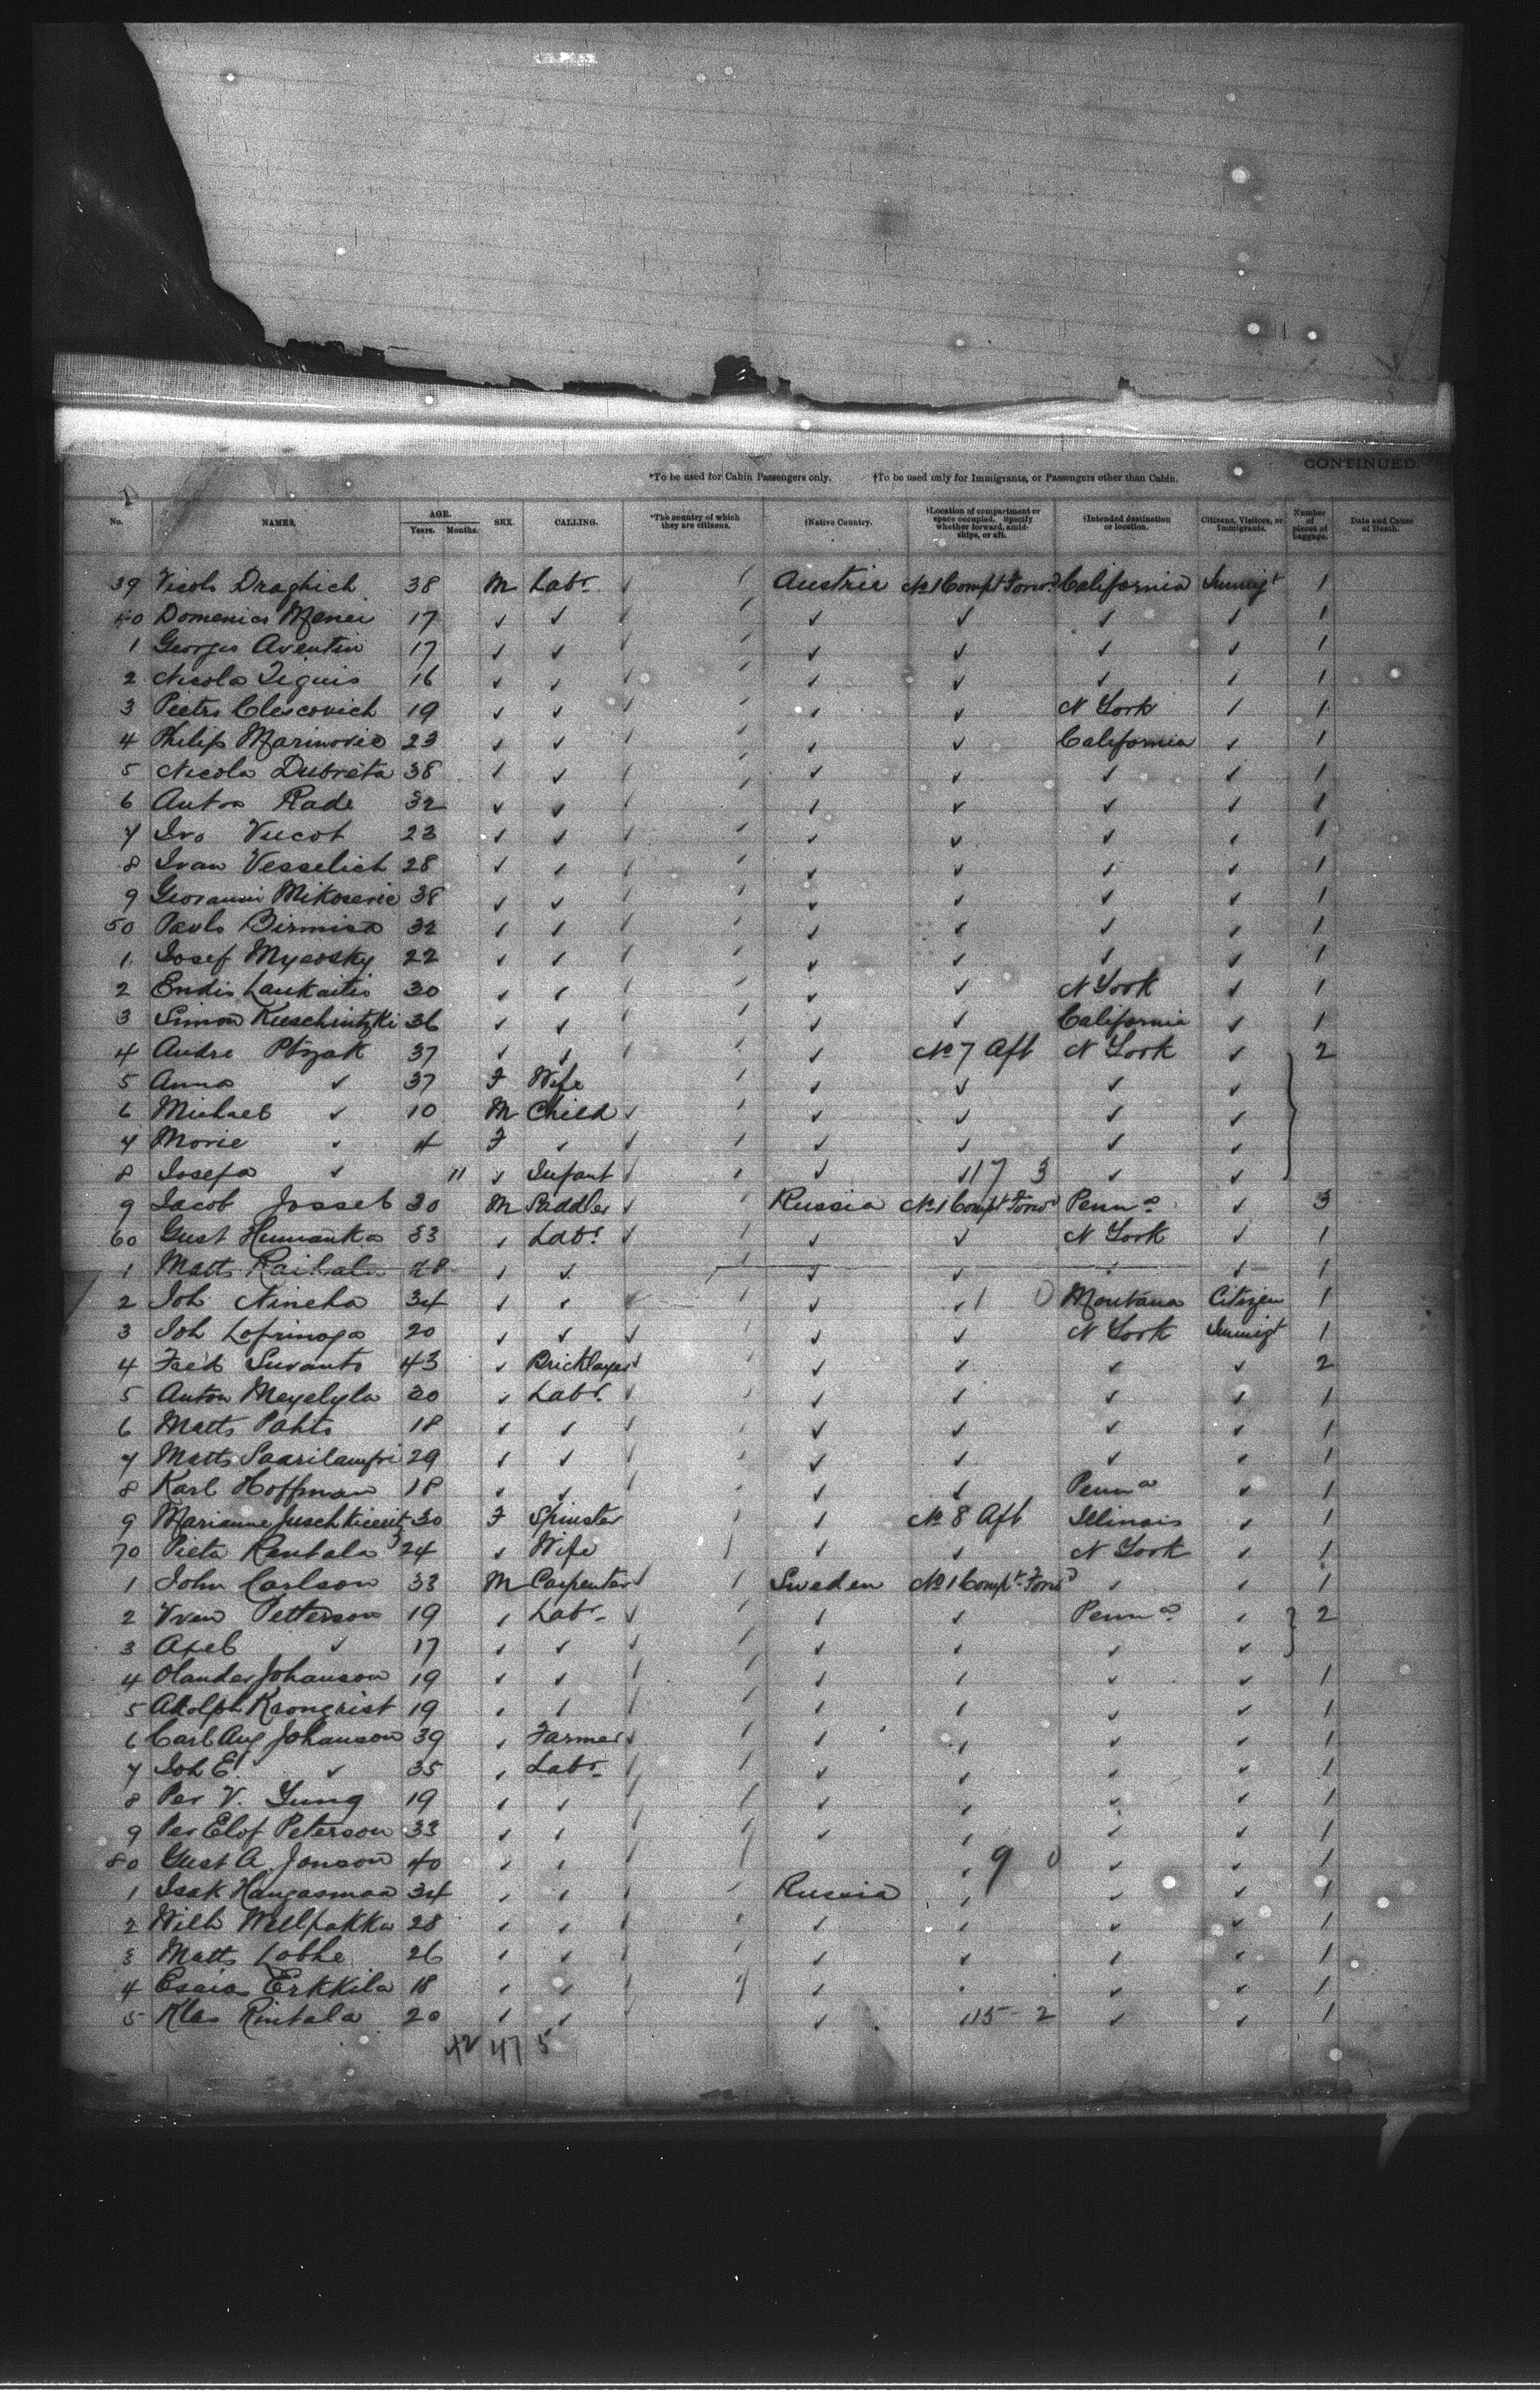 CONTINUED.
*To be used for Cabin Passengers only. †To be used only for Immigrants, or Passengers other than Cabin.
No. NAMES. AGE. Years. Months. SEX. CALLING. *The country of which they are citizens. †Native Country. †Location of compartment or space occupied. Specify whether forward, amidships, or aft. †Intended destination or location. Citizens, Visitors, or Immigrants. Number of pieces of baggage. Date and Cause of Death.
39 Draghich 38 M Labr Austria No 1 Compt Forwd California Immigt 1
40 Domenico 17 ✓ ✓ ✓ ✓ ✓ ✓ 1
1 Georges Aventin 17 ✓ ✓ ✓ ✓ ✓ ✓ 1
2 Nicola 16 ✓ ✓ ✓ ✓ ✓ ✓ 1
3 Pietro Clescovich 19 ✓ ✓ ✓ ✓ N York ✓ 1
4 Philip Marinovic 23 ✓ ✓ ✓ ✓ California ✓ 1
5 Nicola Dubreta 38 ✓ ✓ ✓ ✓ ✓ ✓ 1
6 Anton Rade 32 ✓ ✓ ✓ ✓ ✓ ✓ 1
7 Ivo Vucot 23 ✓ ✓ ✓ ✓ ✓ ✓ 1
8 Ivan Vesselich 28 ✓ ✓ ✓ ✓ ✓ ✓ 1
9 Giovanni Mikosevic 38 ✓ ✓ ✓ ✓ ✓ ✓ 1
50 Pavlo Birmisa 32 ✓ ✓ ✓ ✓ ✓ ✓ 1
1 Josef Mycosky 22 ✓ ✓ ✓ ✓ ✓ ✓ 1
2 Endis Laukaitis 30 ✓ ✓ ✓ ✓ N York ✓ 1
3 Simon Kuschintzki 36 ✓ ✓ ✓ ✓ California ✓ 1
4 Andre Ptzak 37 ✓ ✓ ✓ No 7 Aft N York ✓ 2
5 Anna ✓ 37 F Wife ✓ ✓ ✓ ✓
6 Michael ✓ 10 M Child ✓ ✓ ✓ ✓
7 Marie ✓ 4 F ✓ ✓ ✓ ✓ ✓
8 Josefa ✓ 11 ✓ Infant ✓ 117 3 ✓ ✓
9 Jacob Jossel 30 M Saddler Russia No 1 Compt Forwd Penna ✓ 3
60 Gust 33 ✓ Labr ✓ ✓ N York ✓ 1
1 Matts Raihala 48 ✓ ✓ ✓ ✓ ✓ ✓ 1
2 Joh 34 ✓ ✓ ✓ ✓ 1 0 Montana Citizen 1
3 Joh 20 ✓ ✓ ✓ ✓ N York Immigt 1
4 Suvanto 43 ✓ Bricklayer ✓ ✓ ✓ ✓ 2
5 Anton 20 ✓ Labr ✓ ✓ ✓ ✓ 1
6 Matts Pahto 18 ✓ ✓ ✓ ✓ ✓ ✓ 1
7 Matts Saarilampi 29 ✓ ✓ ✓ ✓ ✓ ✓ 1
8 Karl Hoffman 18 ✓ ✓ ✓ ✓ Penna ✓ 1
9 Marianne 30 F Spinster ✓ No 8 Aft Illinois ✓ 1
70 Rantala 24 ✓ Wife ✓ ✓ N York ✓ 1
1 John Carlson 33 M Carpenter Sweden No 1 Compt Forwd ✓ ✓ 1
2 Petterson 19 ✓ Labr ✓ ✓ Penna ✓ 2
3 Axel ✓ 17 ✓ ✓ ✓ ✓ ✓ ✓
4 Olander Johanson 19 ✓ ✓ ✓ ✓ ✓ ✓ 1
5 Adolph Kronqvist 19 ✓ ✓ ✓ ✓ ✓ ✓ 1
6 Carl Aug Johanson 39 ✓ Farmer ✓ ✓ ✓ ✓ 1
7 Joh E. ✓ 35 ✓ Labr ✓ ✓ ✓ ✓ 1
8 Per V. 19 ✓ ✓ ✓ ✓ ✓ ✓ 1
9 Per Elof Peterson 33 ✓ ✓ ✓ ✓ ✓ ✓ 1
80 Gust A Jonson 40 ✓ ✓ ✓ 9 0 ✓ ✓ 1
1 Isak Hangasmaa 34 ✓ ✓ Russia ✓ ✓ ✓ 1
2 Wilh 28 ✓ ✓ ✓ ✓ ✓ ✓ 1
3 Matts 26 ✓ ✓ ✓ ✓ ✓ ✓ 1
4 Esaias Erkkila 18 ✓ ✓ ✓ ✓ ✓ ✓ 1
5 Klas Rintala 20 ✓ ✓ ✓ 115 - 2 ✓ ✓ 1
42 47 5